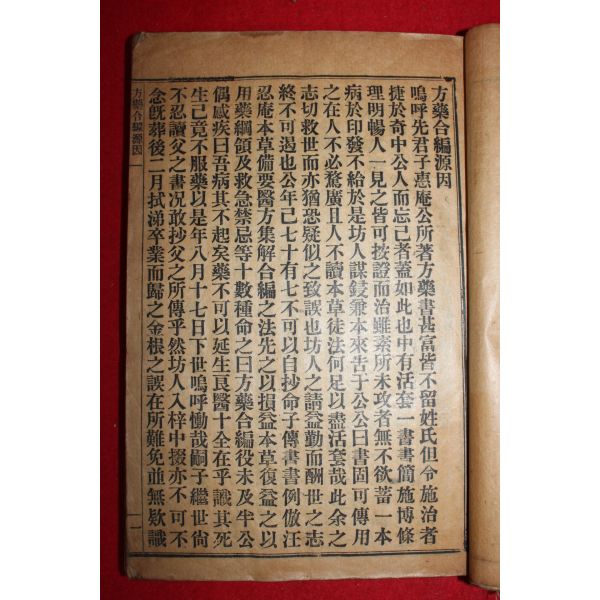 方藥合編源因
嗚呼先君子惠庵公所著方藥書甚富皆不留姓氏但令施治者
捷於奇中公人而忘己者蓋如此也中有活套一書書簡施博條
理明暢人一見之皆可按證而治雖素所未攻者無不欲蓄一本
病於印發不給於是坊人謀鋟兼本來告于公公曰書固可傳用
之在人不必騖廣且人不讀本草徒法何足以盡活套哉此余之
志切救世而亦猶恐疑似之致誤也坊人之請益勤而酬世之志
終不可遏也公年已七十有七不可以自抄命子傳書書例倣汪
忍庵本草備要醫方集解合編之法先之以損益本草復益之以
用藥綱領及救急禁忌等十數種命之曰方藥合編役未及半公
偶感疾曰吾病其不起矣藥不可以延生良醫十全在乎識其死
生已竟不服藥以是年八月十七日下世嗚呼慟哉嗣子繼世尙
不忍讀父之書况敢抄父之所傳乎然坊人入梓中掇亦不可不
念旣葬後二月拭涕卒業而歸之金根之誤在所難免並無欵識
方藥合編源因
一